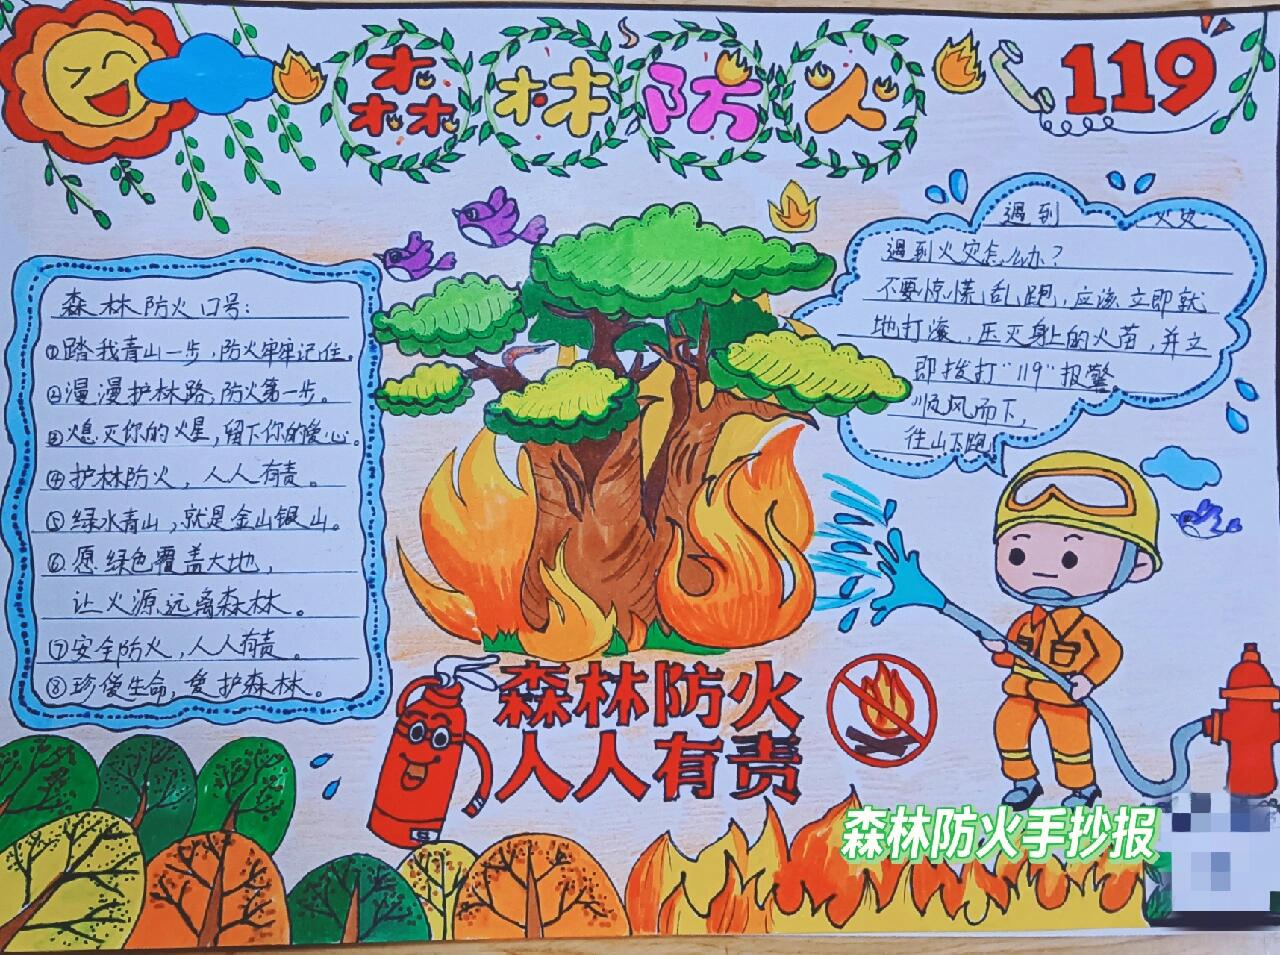 森林防火
119
森林防火口号:
①踏我青山一步,防火牢牢记住。
②漫漫护林路,防火第一步。
③熄灭你的火星,留下你的爱心。
④护林防火,人人有责。
⑤绿水青山,就是金山银山。
⑥愿绿色覆盖大地,
让火源远离森林。
⑦安全防火,人人有责。
⑧珍爱生命,爱护森林。
遇到 火灾
遇到火灾怎么办?
不要惊慌乱跑,应该立即就
地打滚,压灭身上的火苗,并立
即拨打"119"报警。
顺风而下,
往山下跑。
森林防火
人人有责
森林防火手抄报